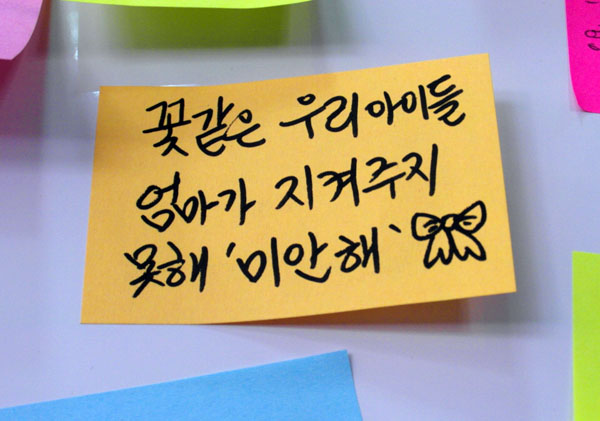 꽃같은 우리아이들
엄마가 지켜주지
못해 '미안해'